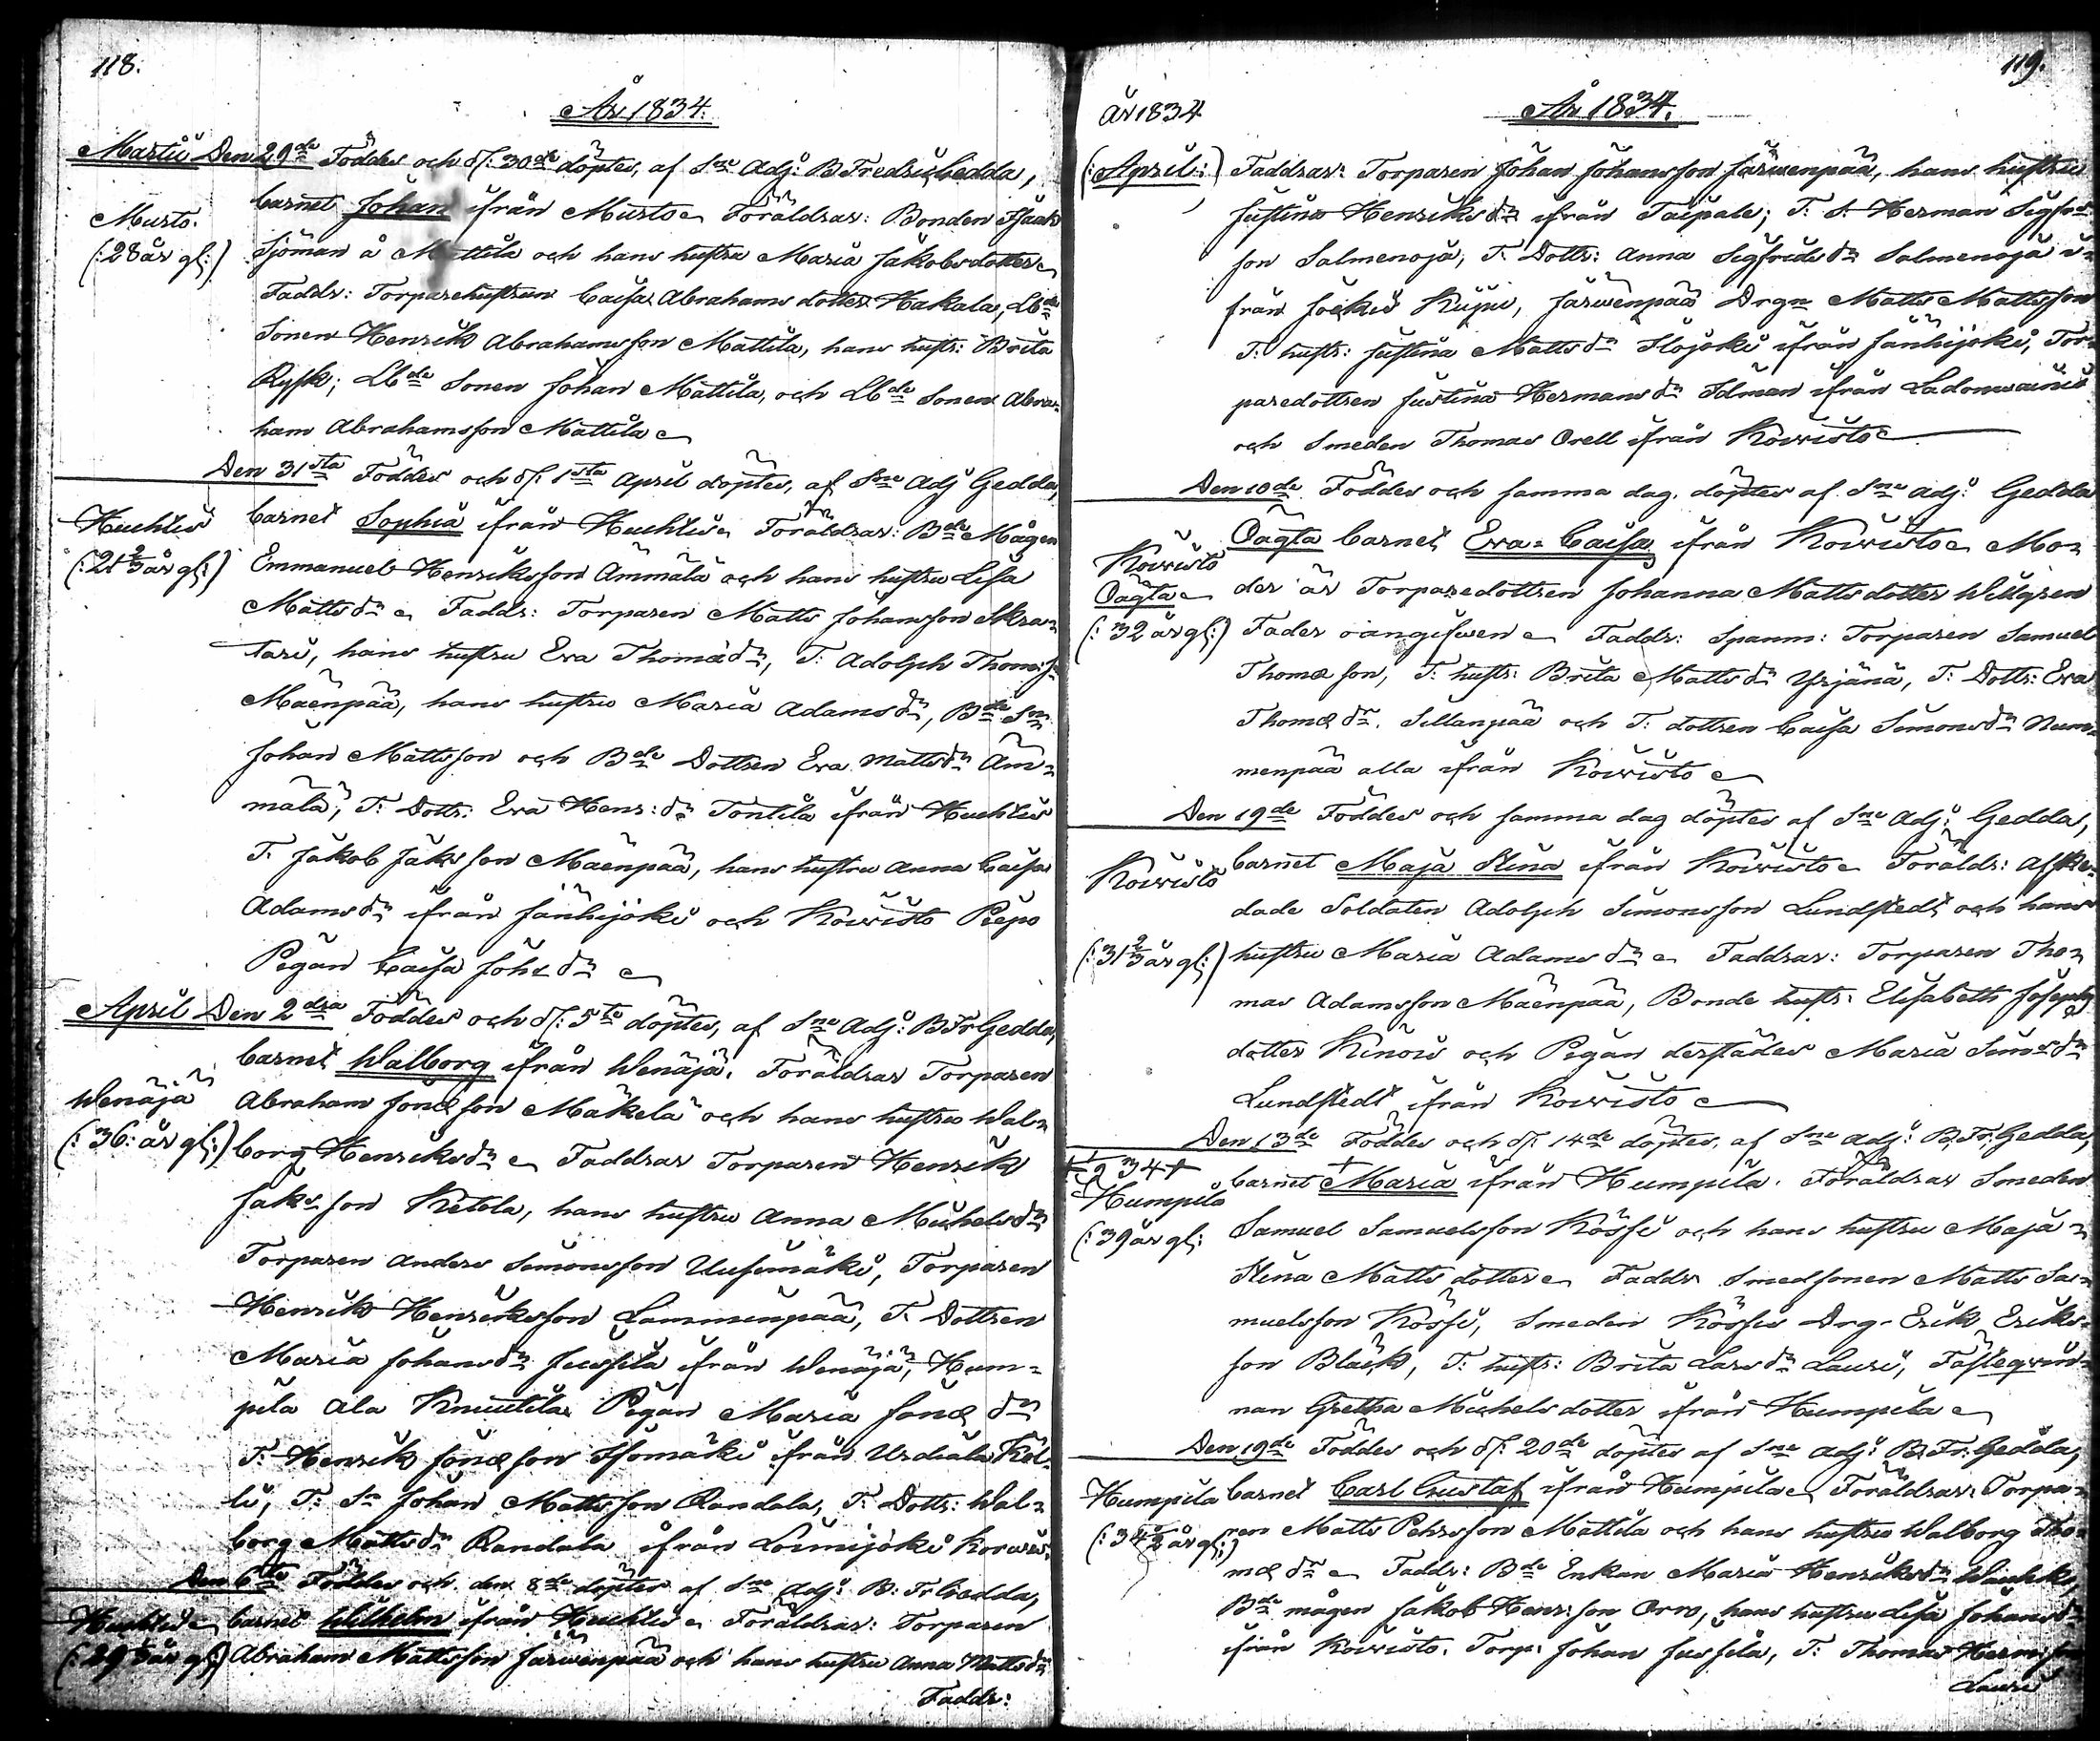 118.
År 1834.
Martii Den 29de Föddes och d/: 30de döptes, af Sne Adj: B Fredric Gedda,
barnet Johan ifrån Mursto Föräldrar: Bonden Isaac
Mursto.
(: 28 år gl:)
Sjöman å Mattila och hans hustru Maria Jakobsdotter
Faddr: Torparehustrun Caisa Abrahams dotter Hakala, Lbde
Sonen Henrik Abrahamsson Mattila, hans hustr: Brita
Rysk; Lbde Sonen Johan Mattila, och Lbde Sonen Abra=
ham Abrahamsson Mattila
Den 31sta Föddes och d/: 1sta April döptes, af Sne Adj Gedda,
Huchtis
barnet Sophia ifrån Huchtis Föräldrar: Bde Mågen
(: 21 2/3 år gl:)
Emmanuel Henriksson Ämmälä och hans hustru Lisa
Matts dr Faddr: Torparen Matts Johansson Skra=
tari, hans hustru Eva Thomædr, T: Adolph Thom: s:
Mäenpää, hans hustru Maria Adams dr, Bde Sn
Johan Mattsson och Bde Dottren Eva Mattsdr Äm=
mälä, T: Dottr: Eva Henr: dr Tontila ifrån Huchtis
T. Jakob Jaks son Mäenpää, hans hustru Anna Caisa
Adams dr ifrån Jänhijoki och Koivisto Piepo
Pigan Caisa Johs dr
April Den 2dra Föddes och d/: 5te döptes, af Sne Adj: B Fr Gedda,
barnet Walborg ifrån Wenäjä. Föräldrar Torparen
Wenäjä
Abraham Jonæ son Mäkelä och hans hustru Wal=
(: 36: år gl:)
borg Henriks dr Faddrar Torparen Henrik
Jaks son Ketola, hans hustru Anna Michels dr
Torparen Anders Simonsson Uusimäki, Torparen
Henrik Henriksson Lammenpää, T. Dottren
Maria Johans dr Jussila ifrån Wenäjä, Hum=
pila Ala Knuutila Pigan Maria Jonæ dr
T: Henrik Jonæ son Isomäki ifrån Urdiala Kol
li, T: Sn Johan Mattsson Randala, T. Dottr: Wal=
borg Matts dr Randala ifrån Loimijoki
Den 6te Föddes och den 8de döptes af Sne Adj: B: Fr Gedda,
Huchtis
barnet Wilhelm ifrån Huchtis Föräldrar: Torparen
(: 29 år gl:)
Abraham Mattsson Järwenpää och hans hustru Anna Matts dr
Faddr:
119.
År 1834
År 1834.
(: April :)
Faddrar: Torparen Johan Johansson Järwenpää, hans hustru
Justina Henriks dr ifrån Taipale; T. S. Herman Sigfrs=
son Salmenoja, T. Dottr: Anna Sigfrids dr Salmenoja i=
från Jockis Kuju, Järwenpää Drgn Matts Mattsson
T: hustr: Justina Matts dr Slojoki ifrån Jänhijoki, Tor=
paredottren Justina Hermans dr Idman ifrån
och Smeden Thomas Orell ifrån Koivisto
Den 10de Föddes och samma dag döptes af Sne Adj: Gedda
Oägta barnet Eva = Caisa ifrån Koivisto Mo=
Koivisto
Oägta
der är Torparedottren Johanna Mattsdotter Willgren
(: 32 år gl:)
Fader oangifwen Faddr: Spanm: Torparen Samuel
Thomæ son, T: hustr: Brita Matts dr Yrjänä, T: Dottr: Eva
Thomæ dr. Sillanpää och T: dottren Caisa Simons dr Num=
menpää alla ifrån Koivisto
Den 19de Föddes och samma dag döptes af Sne Adj: Gedda,
barnet Maja Stina ifrån Koivisto Föräldr: Afske=
Koivisto
dade Soldaten Adolph Simonsson Lundstedt och hans
(: 31 2/3 år gl:)
hustru Maria Adams dr Faddrar: Torparen Tho=
mas Adamsson Mäenpää, Bonde hustr: Elisabeth Josephs
dotter Kinois och Pigan derstädes Maria Sims dr
Lundstedt ifrån Koivisto
Den 13de Föddes och d/: 14de döptes, af Sne Adj: B. Fr: Gedda,
barnet + Maria ifrån Humpila. Föräldrar Smeden
Humpila
Samuel Samuelsson Kössi och hans hustru Maja =
(: 39 år gl:
Stina Matts dotter Faddr Smedsonen Matts Sa=
muelsson Kössi, Smeden Kössis Drg. Erik Eriks=
son Bläck, T: hustr: Brita Lars dr Lauri, Fästeqwin=
nan Gretha Michels dotter ifrån Humpila
Den 19de Föddes och d/: 20de döptes af Sne Adj: B. Fr: Gedda,
Humpila
barnet Carl Gustaf ifrån Humpila Föräldrar: Torpa=
(: 34 1/2 år gl:)
ren Matts Pehrsson Mattila och hans hustru Walborg Tho=
mæ dr Faddr: Bde Enkan Maria Henriks dr
Bde mågen Jakob Henr: son Orro, hans hustru Lisa Johans dr
ifrån Koivisto. Torp: Johan Jussila, T: Thomas Herm: son
Lauri